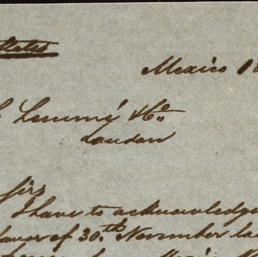 States
Mexico 18
Lemmé & Co.
London
Sirs
I have to acknowledge
favor of 30th November la